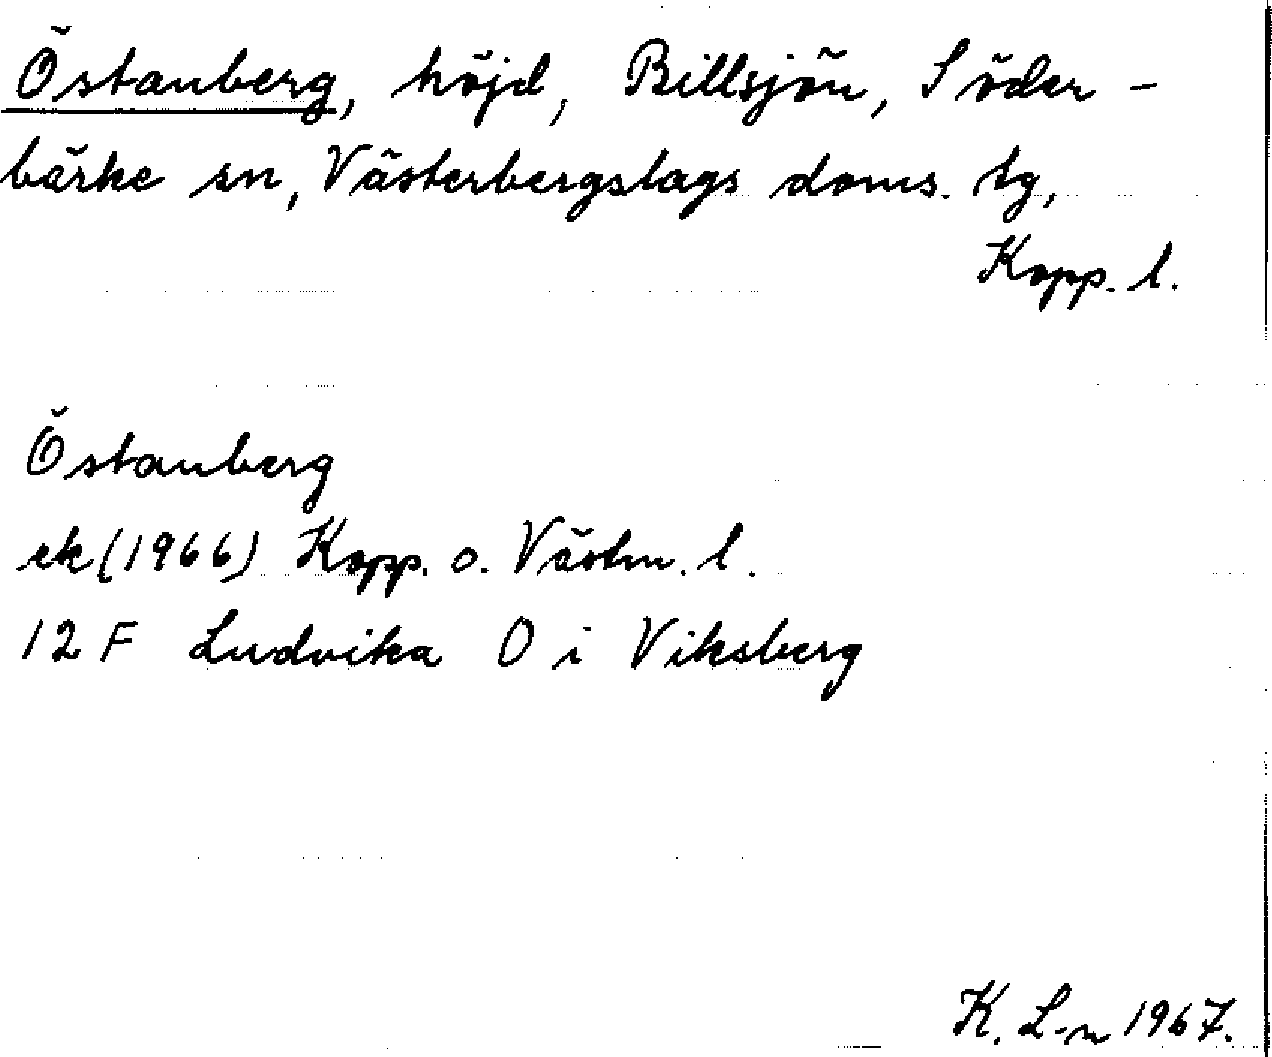 Östanberg, höjd, Billsjön, Söder-
bärke sn, Västerbergslags doms. tg,
Kopp. l.
Östanberg
ek (1966) Kopp. o. Västm. l.
12 F Ludvika O i Viksberg
K. L-n 1967.